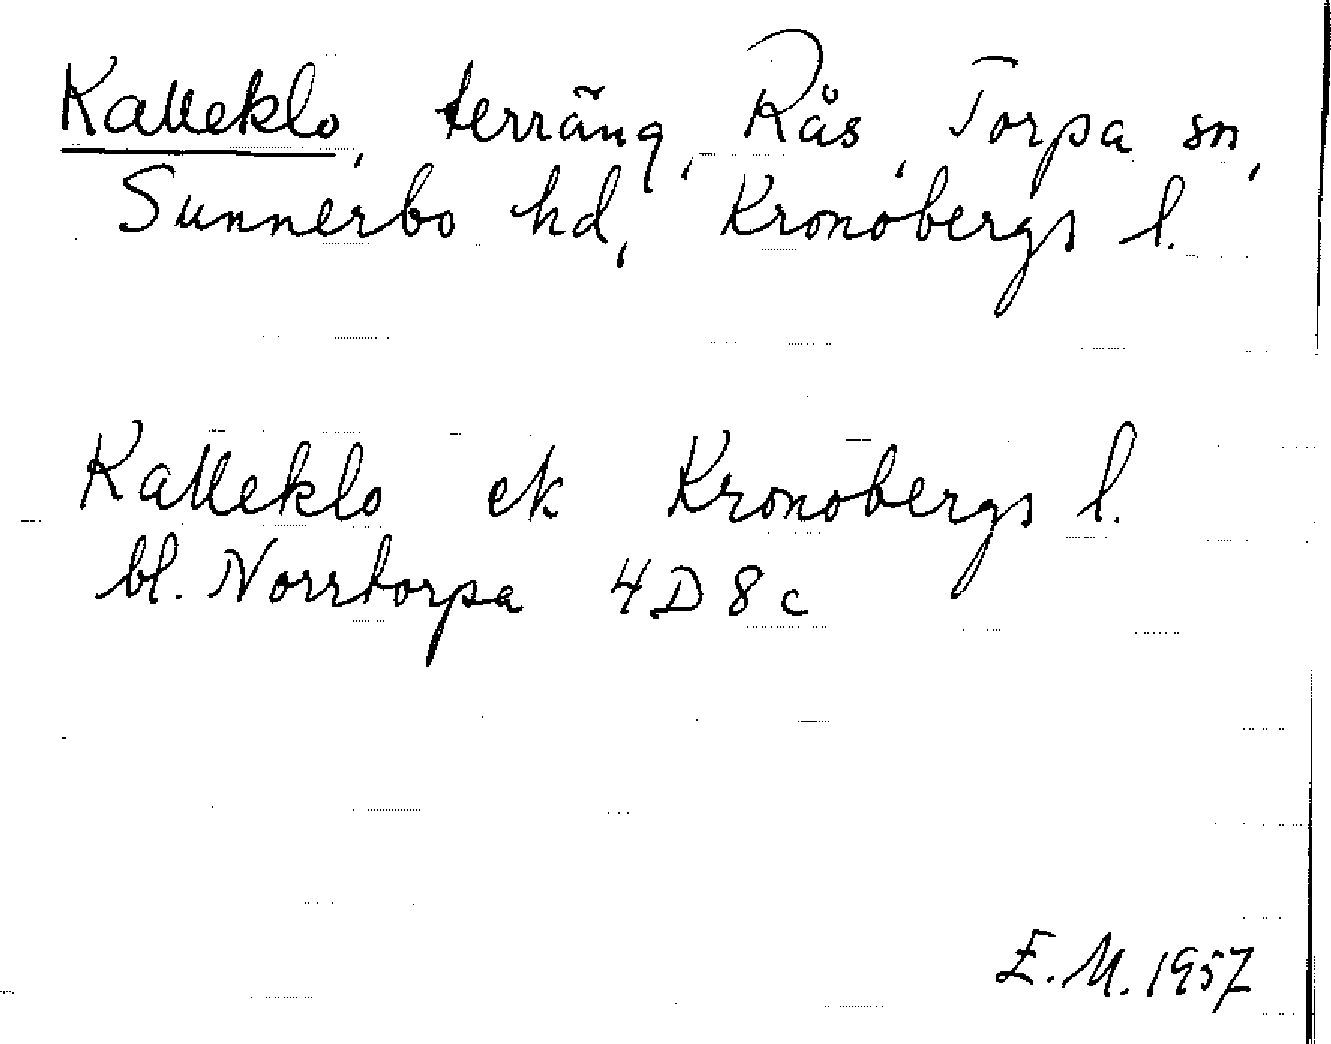 Kalleklo, terräng, Rås, Torpa sn,
Sunnerbo hd, Kronobergs l.
Kalleklo ek Kronobergs l.
bl. Norrtorpa 4D8c
E.M. 1957